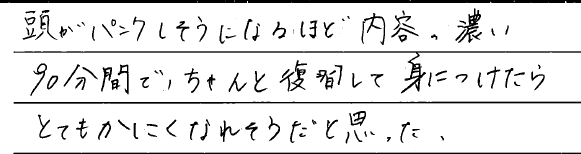 頭がパンクしそうになるほど内容の濃い
90分間で、ちゃんと復習して身につけたら
とてもかしこくなれそうだと思った、